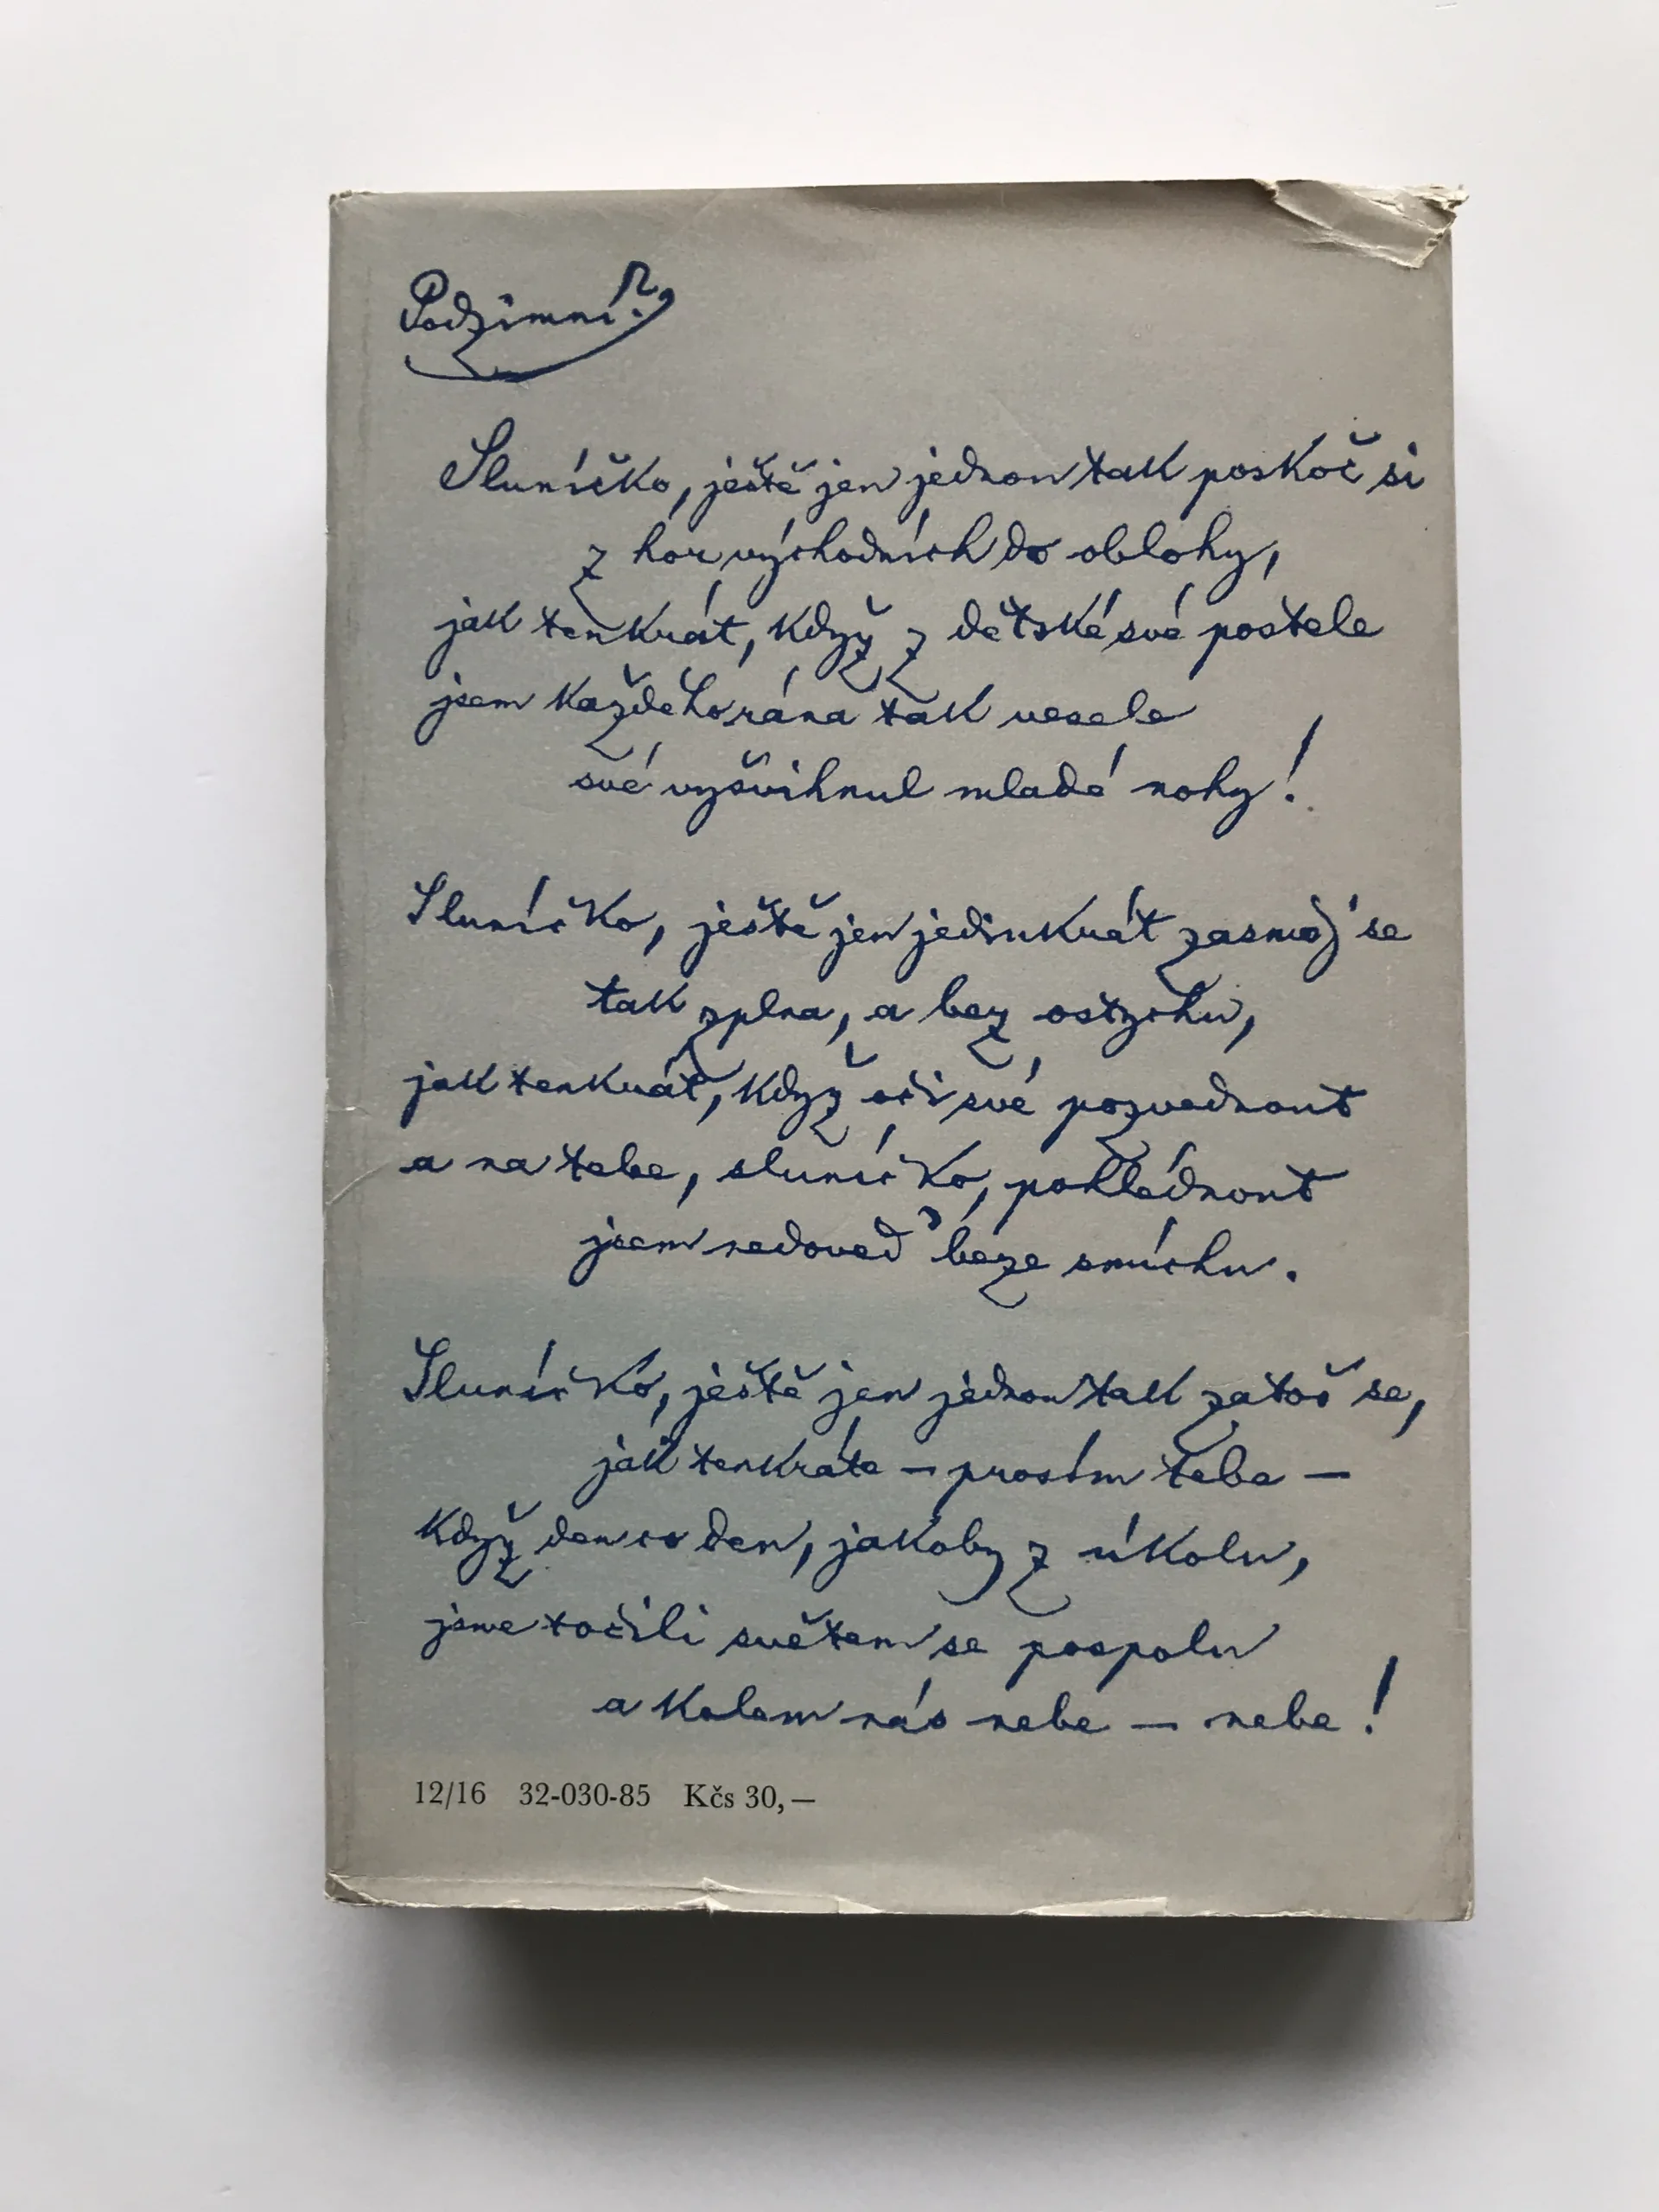 Podzimní.
Sluníčko, ještě jen jednou tak poskoč si
z hor východních do oblohy,
jak tenkrát, když z dětské své postele
jsem každého rána tak vesele
své vyšvihnul mladé nohy!
Sluníčko, ještě jen jedinkrát zasměj se
tak zplna, a bez ostychu,
jak tenkrát, když oči své pozvednout
a na tebe, sluníčko, pohlédnout
jsem nedoved' beze smíchu.
Sluníčko, ještě jen jednou tak zatoč se,
jak tenkráte — prosím tebe —
když den co den, jakoby z úkolu,
jsme točili světem se pospolu
a kolem nás nebe — nebe!
12/16 32-030-85 Kčs 30,—